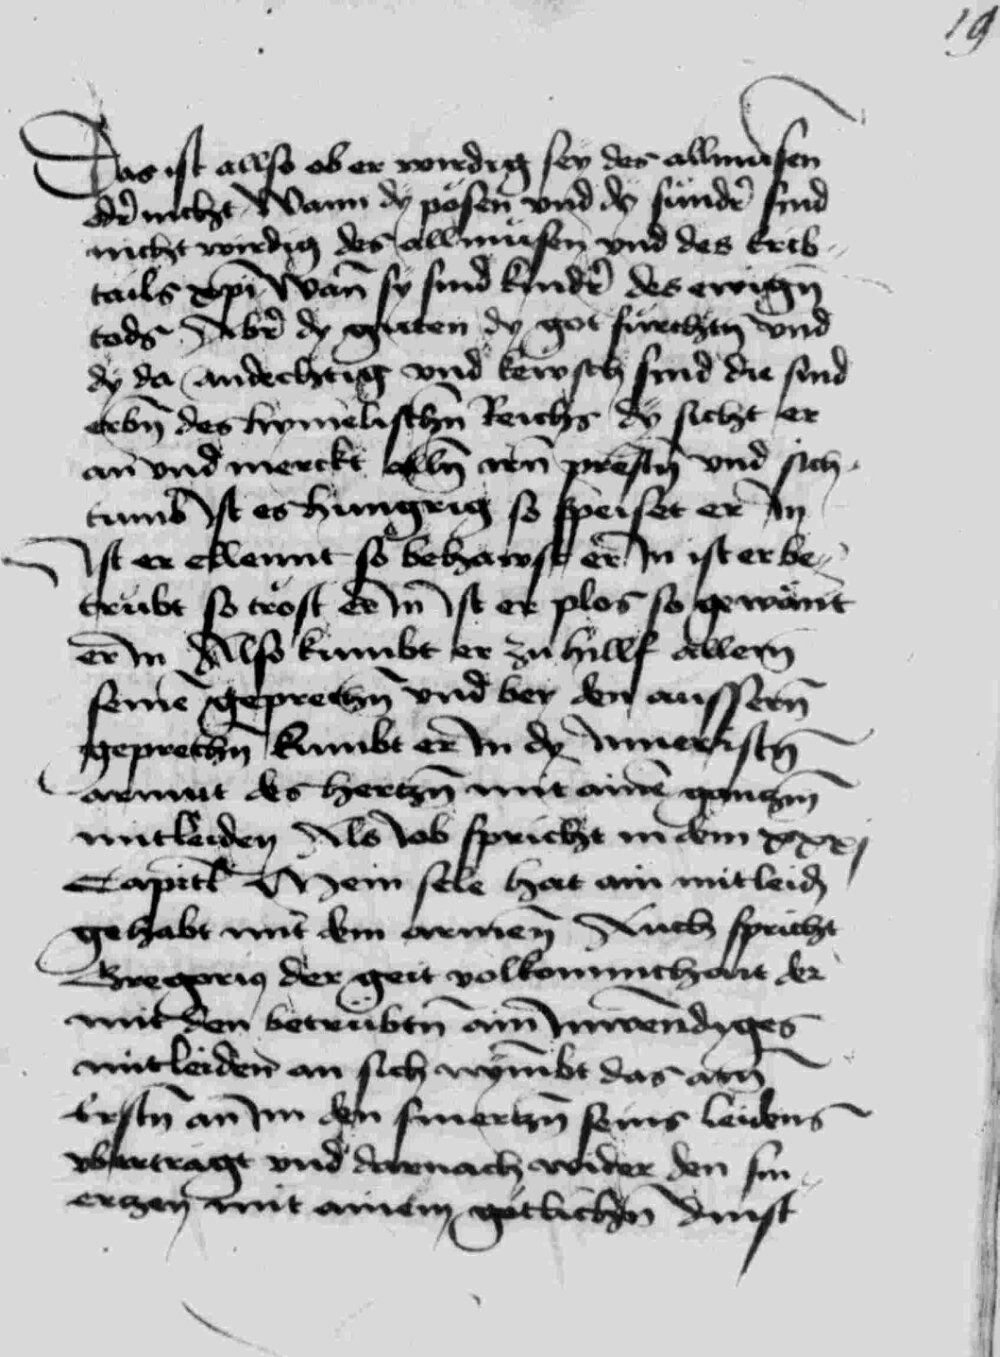 19
Das ist allso ob er wirdig sey des allmuͤsen
odr̄ nicht Wann dy poͤsen vnd dy suͤndr̄ sind
nicht wirdig des allmuͤsen vnd des erib-
tails xp̄i Wan̄ sy sind kindr̄ des ewign̄
tods Abr̄ dy guten dy got fuͤrchtn̄ vnd
dy da andechtig vnd kewsch sind die sind
erbn̄ des hymelischn̄ Reichs dy sicht er
an vnd merckt alln̄ irn̄ prestn̄ vnd sich-
tumb Ist es hungrig so speiset er in
Ist er ellennt so behawst er in ist er be-
truͤbt so troͤst er in Ist er plos so gewant
er in Also kumbt er zu hillf allem
seinē geprechn̄ vnd bey den aussern̄
geprechn̄ kumbt er in dy Inneristn̄
armut des hertzn̄ mit ainē gantzn̄
mitleiden Als Iob spricht in dem xxxj
Capitl Mein sele hat ain mitleidn̄
gehabt mit dem armen̄ Auch spricht
Gregorius der geit volkommchait der
mit den betruͤbtn̄ ain̄ Inwendiges
mitleiden an sich nymbt das
Erstn̄ an im den smertzn̄ seins leidens
vbertragt vnd darnach wider den sm-
ertzen mit ainem goͤtlichn̄ dinst